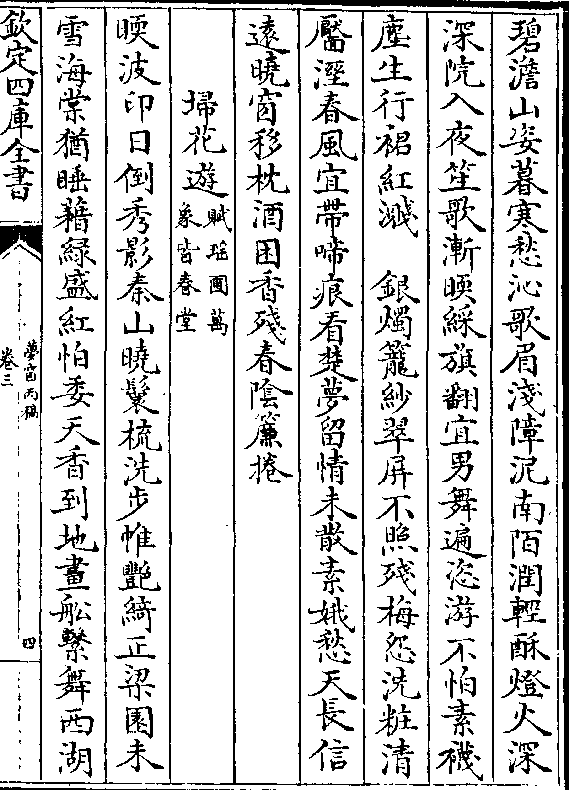 碧澹山姿暮寒愁沁歌眉淺障泥南陌潤輕酥燈火深
深院入夜笙歌漸暖綵旗翻宜男舞遍恣游不怕素襪
塵生行裙紅濺　銀燭籠紗翠屏不照殘梅怨洗粧清
靨溼春風宜帶啼痕看楚夢留情未散素娥愁天長信
遠曉窗移枕酒困香殘春陰簾捲
埽花遊賦瑶圃萬
象皆春堂
暖波印日倒秀影秦山曉鬟梳洗步帷艷綺正梁園未
雪海棠猶睡藉綠盛紅怕委天香到地畫舩繫舞西湖
欽定四庫全書
夢窗丙稿
卷三
四